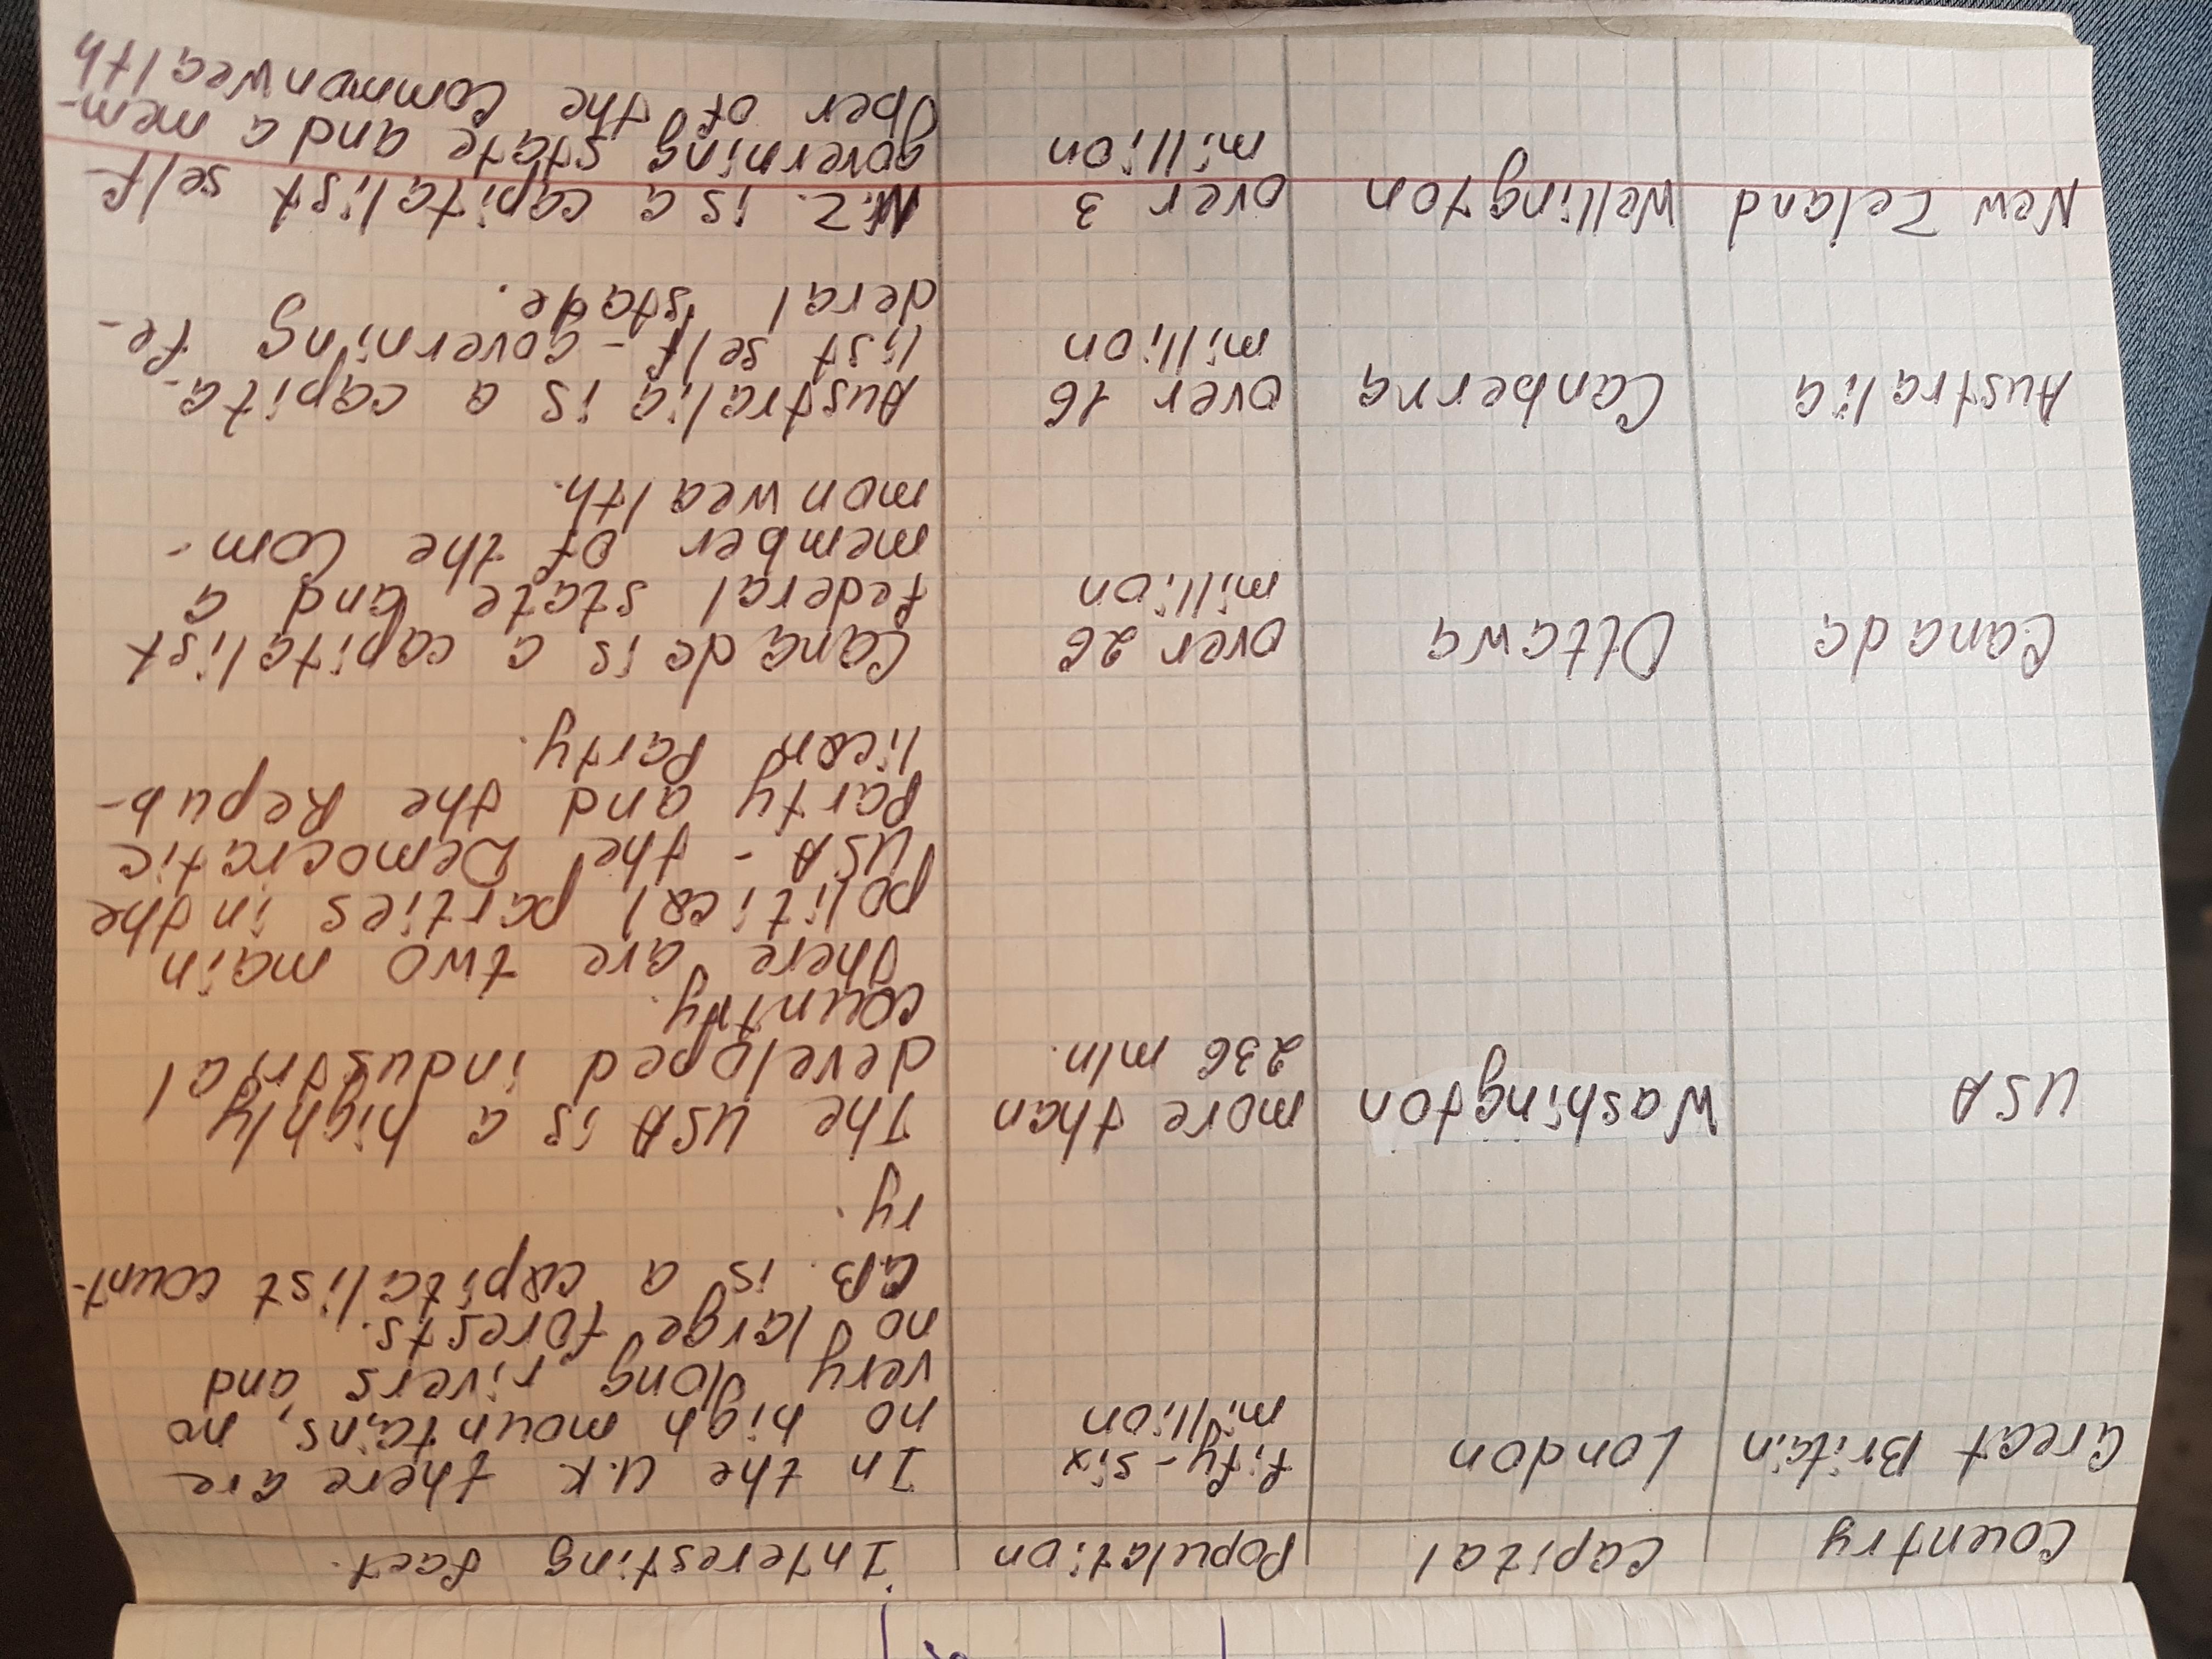 Country Capital Population Interesting fact.
Great Britain London fify-six In the U.K there are
million no high mountains, no
very long rivers and
no large forests.
G.B. is a capitalist count-
ry.
USA Washington more than The USA is a highly
236 mln. developed industrial
country.
There are two main
political parties in the
USA - the Democratic
Party and the Repub-
lican Party.
Canada Ottawa over 26 Canada is a capitalist
million federal state and a
member of the Com-
monwealth.
Australia Canberra over 16 Australia is a capita-
million list self-governing fe-
deral stade.
New Zeland Wellington over 3 N.Z. is a capitalist self
million governing state and a mem-
ber of the Commonwealth